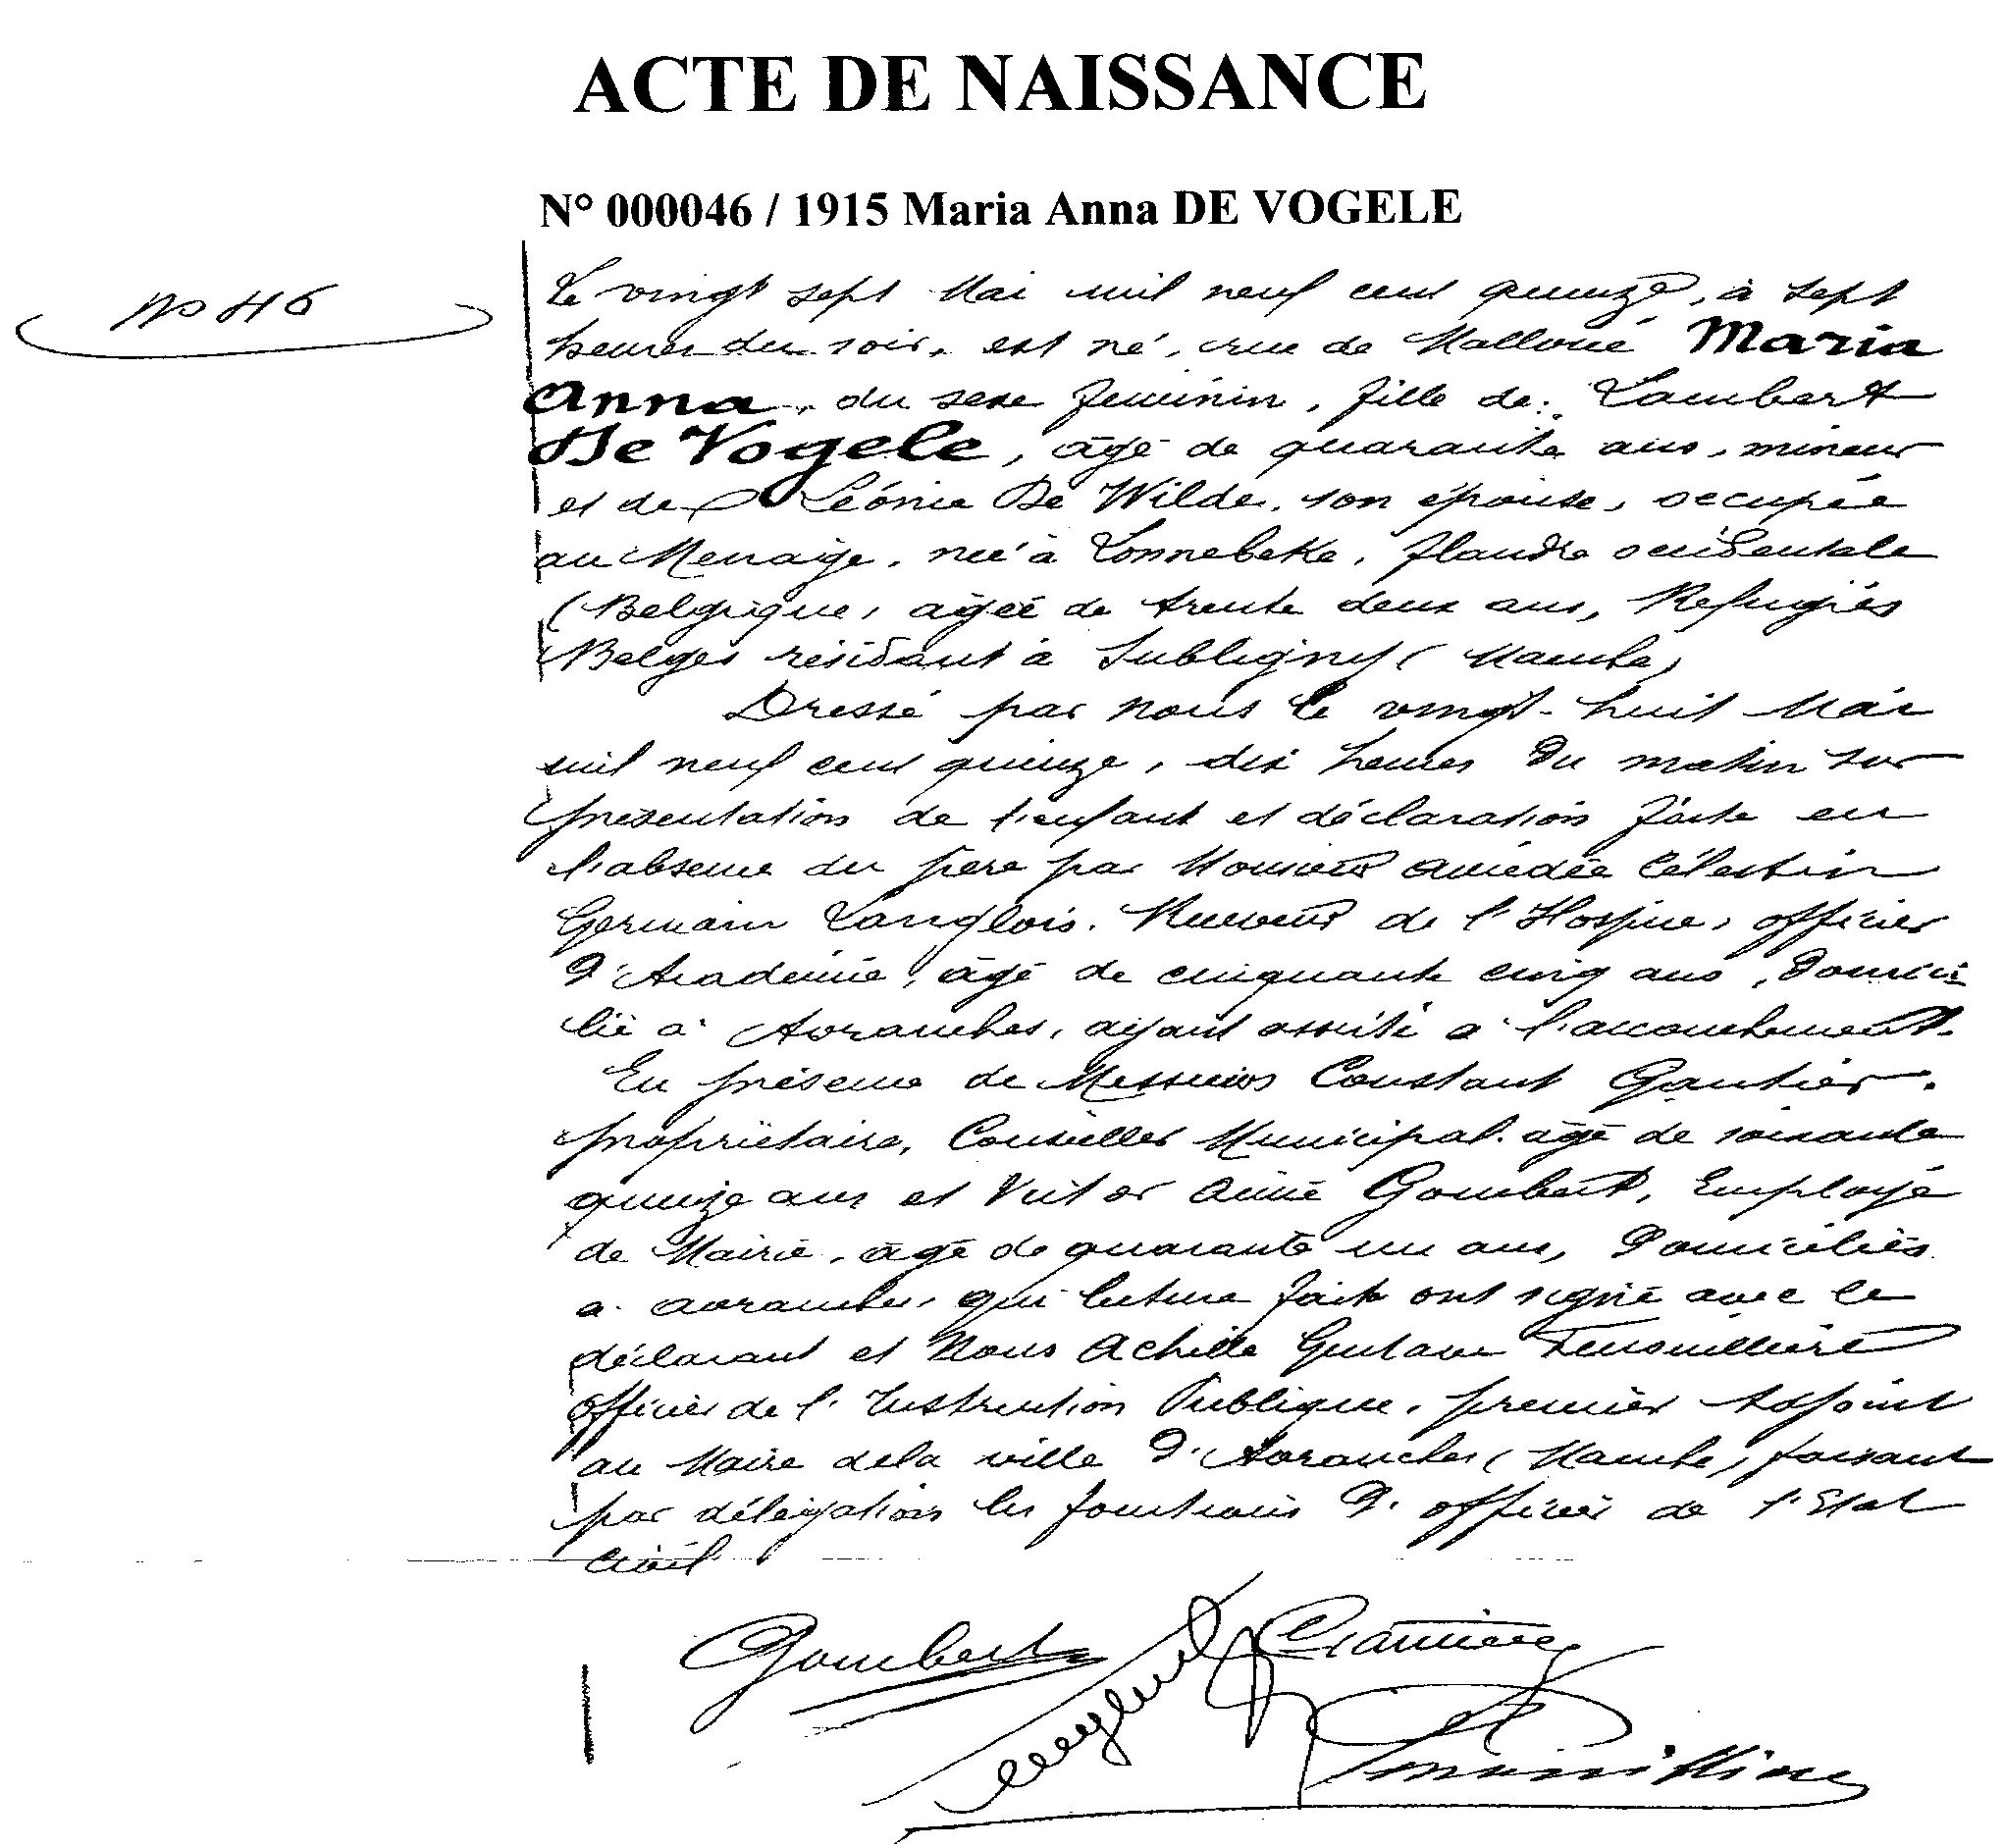 ACTE DE NAISSANCE
N° 000046 / 1915 Maria Anna DE VOGELE
No 46
Le vingt sept Mai mil neuf cent quinze, à sept
heures du soir, est né, rue de Malloué Maria
Anna, du sexe féminin, fille de: Lambert
De Vogele, âgé de quarante ans, mineur
et de Léonie De Wilde, son épouse, occupée
au Menage, née à Zonnebeke, flandre occidentale
(Belgique, agée de trente deux ans, Refugiés
Belges résidant à Subligny (Manche)
Dressé par nous le vingt-huit Mai
mil neuf cent quinze, dix heures du matin sur
présentation de l'enfant et déclaration faite en
l'absence du père par Monsieur Amédée Célestin
Germain Langlois. Receveur de l'Hospice, officier
d'Académie, âgé de cinquante cinq ans, Domici-
lié à Avranches, ayant assisté à l'accouchement.
En présence de Messieurs Constant Gautier.
propriétaire, Conseiller Municipal. âgé de soixante
quinze ans et Victor Aimé Gombert, Employé
de Mairie, âgé de quarante un ans, Domiciliés
à Avranches, qui lecture faite ont signé avec le
déclarant et Nous Achille Gustave
officier de l'Instruction Publique, premier Adjoint
au Maire de la ville d'Avranches (Manche), faisant
par délégation les fonctions d'officier de l'Etat
Civil
Gombert